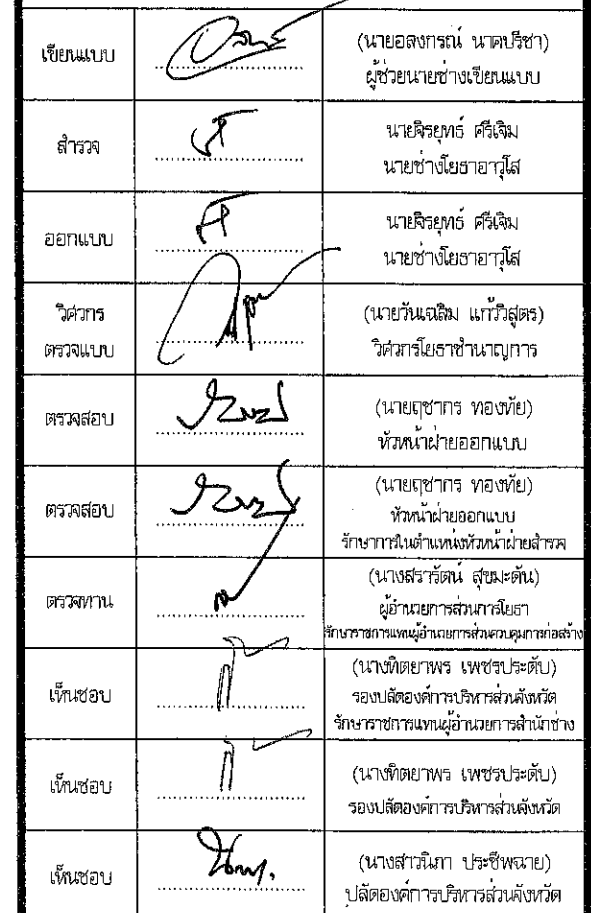 เขียนแบบ
(นายอลงกรณ์ นาคปรีชา)
ผู้ช่วยนายช่างเขียนแบบ
สำรวจ
นายจิรยุทธ์ ศรีเจิม
นายช่างโยธาอาวุโส
ออกแบบ
นายจิรยุทธ์ ศรีเจิม
นายช่างโยธาอาวุโส
วิศวกร
ตรวจแบบ
(นายวันเฉลิม แก้ววิสูตร)
วิศวกรโยธาชำนาญการ
ตรวจสอบ
(นายฤชากร ทองทัย)
หัวหน้าฝ่ายออกแบบ
ตรวจสอบ
(นายฤชากร ทองทัย)
หัวหน้าฝ่ายออกแบบ
รักษาการในตำแหน่งหัวหน้าฝ่ายสำรวจ
ตรวจทาน
(นางสรารัตน์ สุขมะดัน)
ผู้อำนวยการส่วนการโยธา
รักษาราชการแทนผู้อำนวยการส่วนควบคุมการก่อสร้าง
เห็นชอบ
(นางทิตยาพร เพชรประดับ)
รองปลัดองค์การบริหารส่วนจังหวัด
รักษาราชการแทนผู้อำนวยการสำนักช่าง
เห็นชอบ
(นางทิตยาพร เพชรประดับ)
รองปลัดองค์การบริหารส่วนจังหวัด
เห็นชอบ
(นางสาวนิภา ประชีพฉาย)
ปลัดองค์การบริหารส่วนจังหวัด